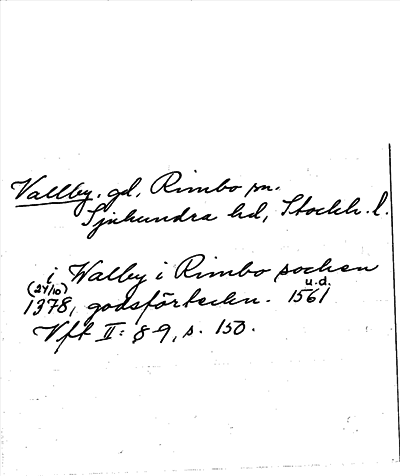 Vallby. gd, Rimbo sn.
Sjuhundra hd, Stockh. l.
i Walby i Rimbo sochen
(24/10) u.d.
1378, godsförteckn. 1561
Vft II: 8-9, s. 150.